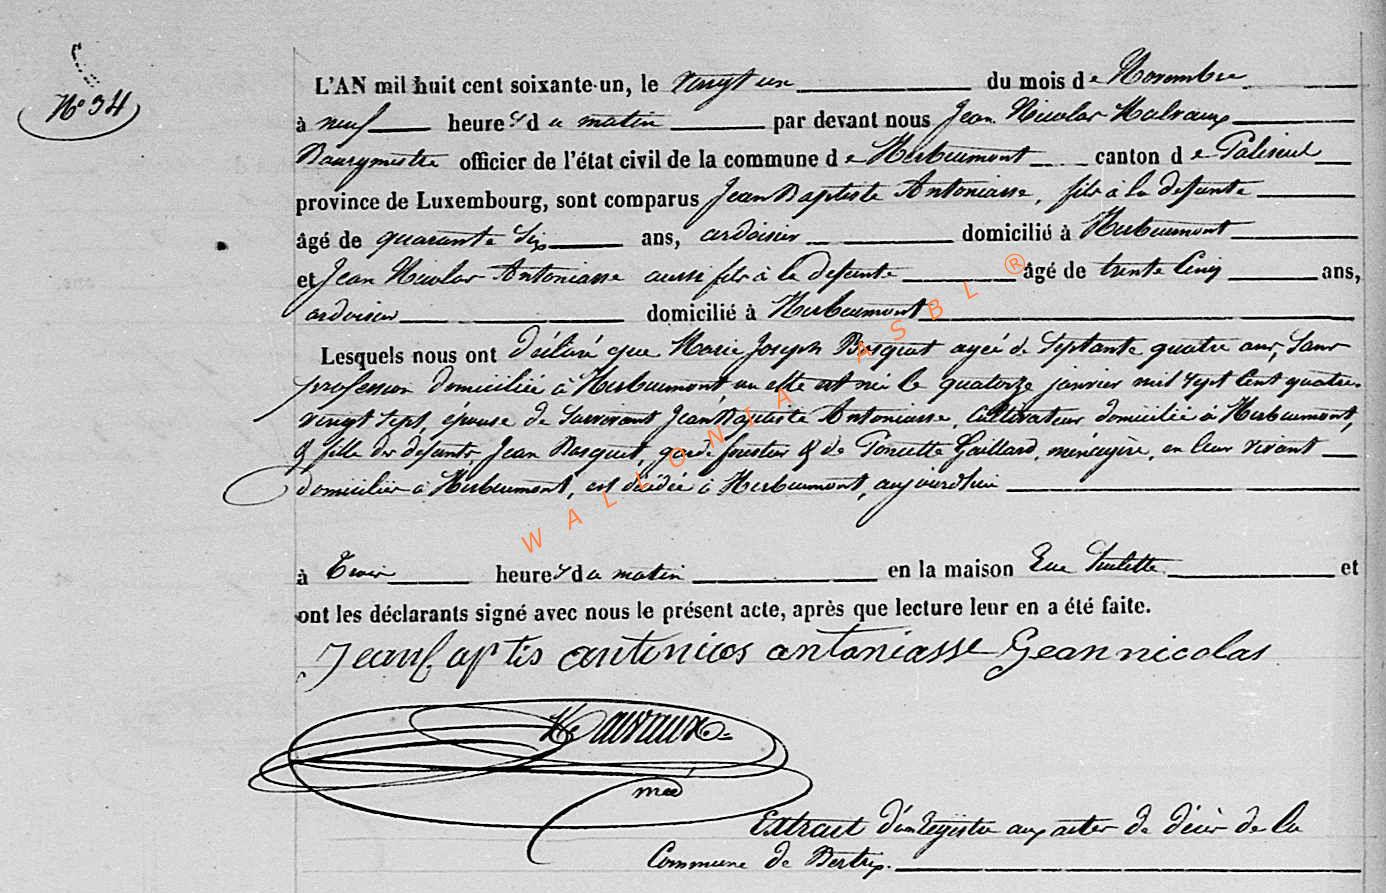 N° 34
L'AN mil huit cent soixante-un, le vingt un du mois de Novembre
à neuf heures du matin par devant nous Jean Nicolas Malvaux
Bourgmestre officier de l'état civil de la commune de Herbeumont canton de Paliseul
province de Luxembourg, sont comparus Jean Baptiste Antoniasse, fils à la défunte
âgé de quarante six ans, ardoisier domicilié à Herbeumont
et Jean Nicolas Antoniasse aussi fils à la défunte âgé de trente cinq ans,
ardoisier domicilié à Herbeumont
Lesquels nous ont déclaré que Marie Joseph Bosquet agée de septante quatre ans, sans
profession domiciliée à Herbeumont, où elle est née le quatorze janvier mil sept cent quatre-
vingt sept, épouse de survivant Jean Baptiste Antoniasse, cultivateur domicilié à Herbeumont,
& fille des défunts, Jean Bosquet, garde forestier & de Poncette Gaillard, ménagère, en leur vivant
domiciliés à Herbeumont, est décédée à Herbeumont, aujourdhui
à trois heures du matin en la maison Rue et
ont les déclarants signé avec nous le présent acte, après que lecture leur en a été faite.
Jean antoniasse Gean nicolas
Malvaux
Extrait d'un registre aux actes de décès de la
Commune de Bertrix.
WALLONIA ASBL ®